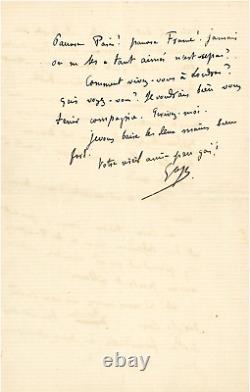 Pauvre Paris! pauvre France! jamais
on ne les a tant aimés n'est-ce pas?
Comment vivez-vous à Londres?
Qui voyez-vous? Je voudrais bien vous
tenir compagnie. Ecrivez-moi.
Je vous baise les deux mains bien
fort.
Votre vieil ami pas gai!
© ebay